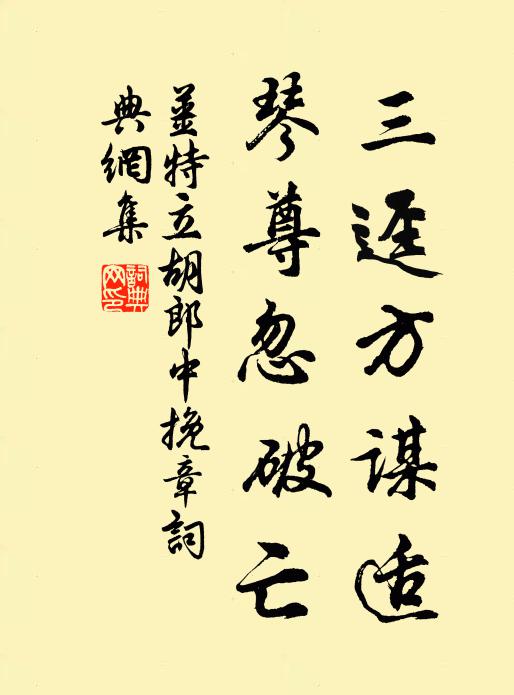 三逕方謀适
琴尊忽破亡
姜特立胡郎中挽章詞
典網集
詞典網印